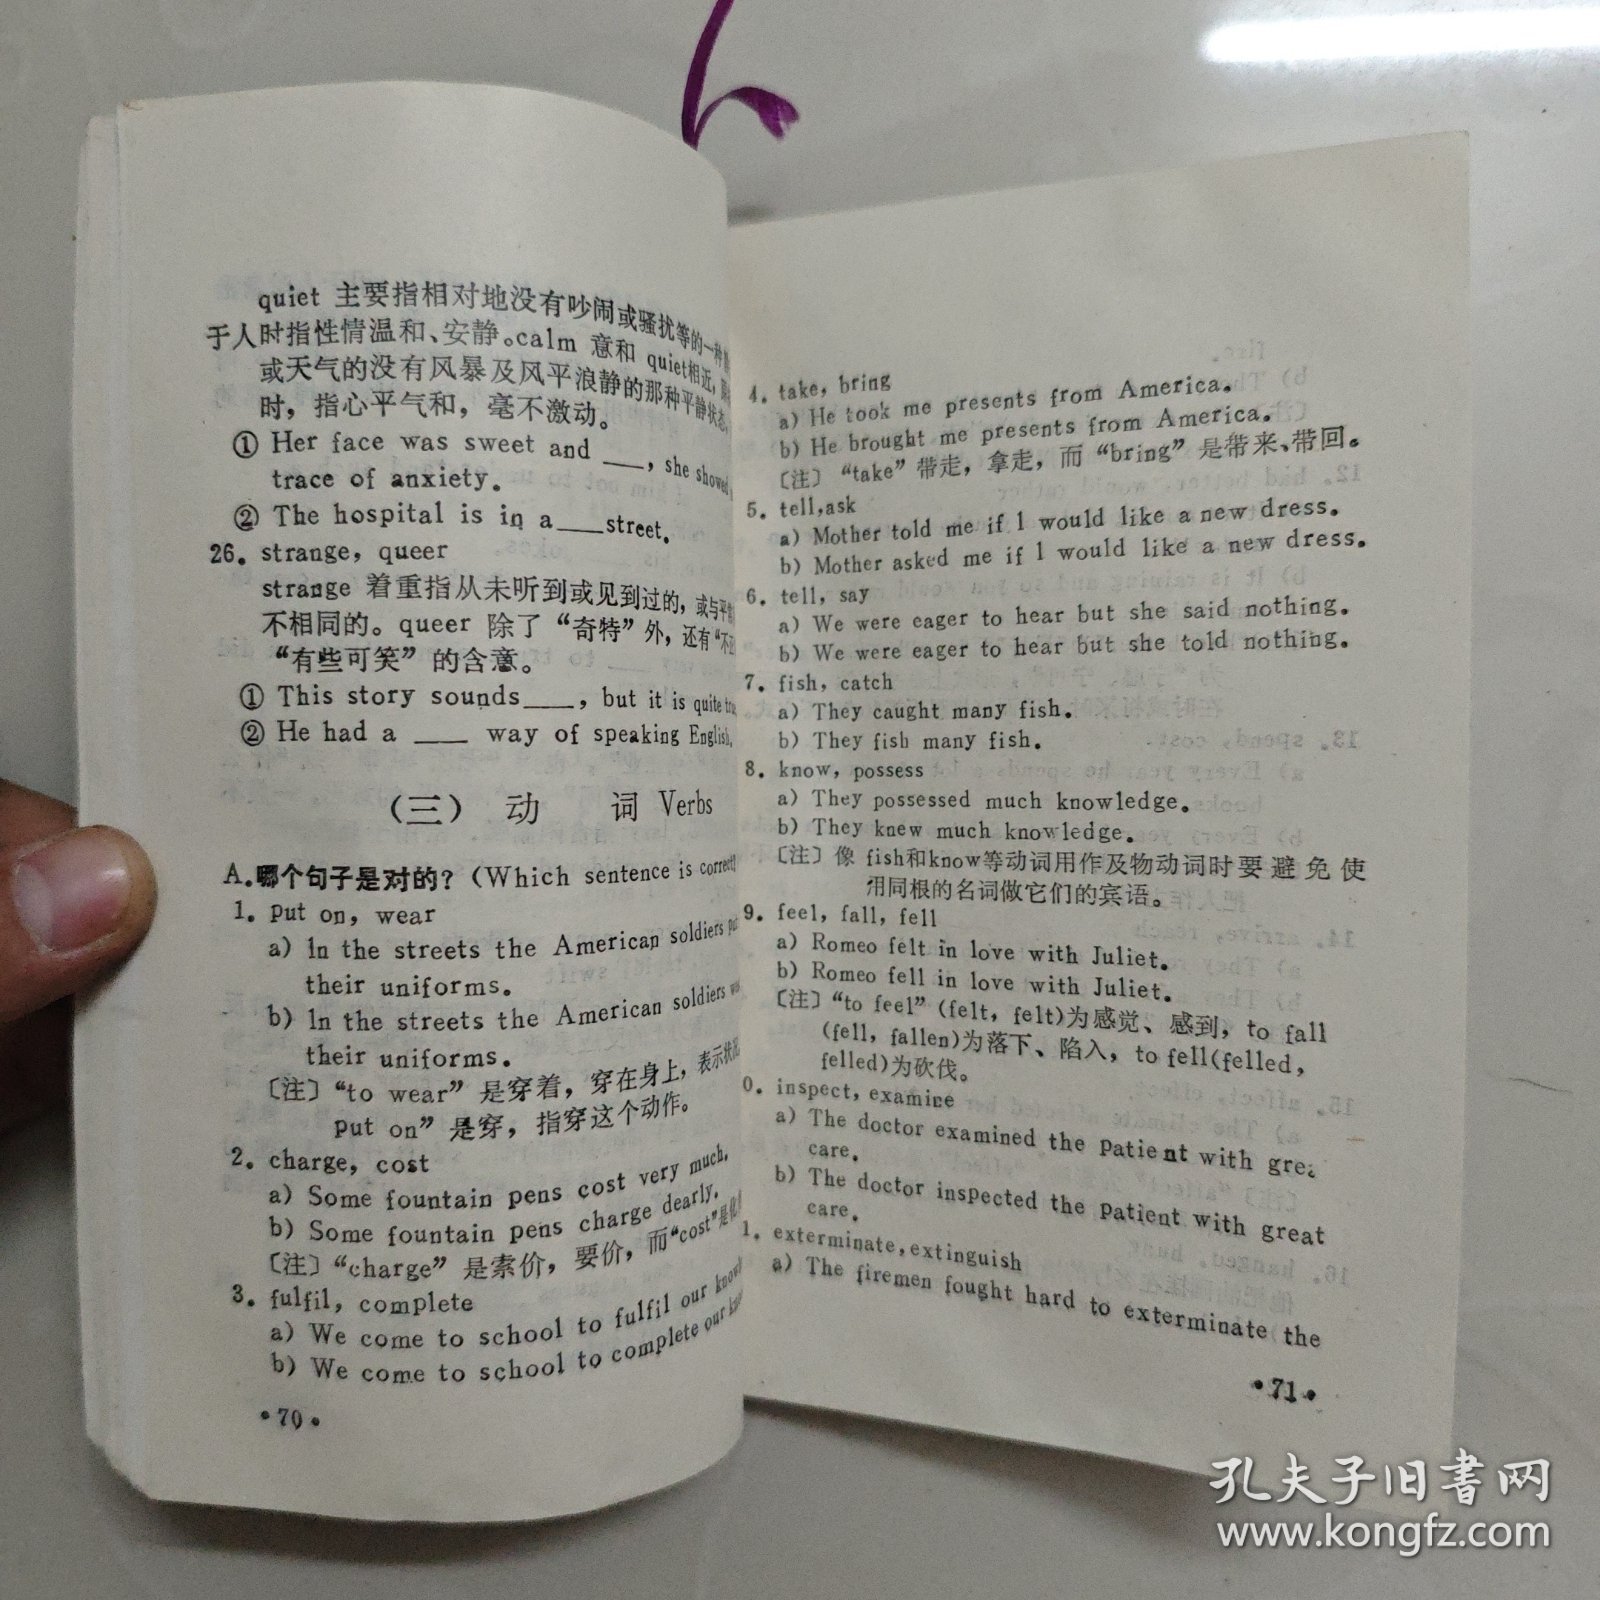 quiet 主要指相对地没有吵闹或骚扰等的一种
于人时指性情温和、安静。calm 意和 quiet相近,
或天气的没有风暴及风平浪静的那种平静状态,
时，指心平气和，毫不激动。
① Her face was sweet and ___, she showed
trace of anxiety.
② The hospital is in a ___ street.
26. strange, queer
strange 着重指从未听到或见到过的，或与平
不相同的。queer 除了“奇特”外，还有“不
“有些可笑”的含意。
① This story sounds ___, but it is quite
② He had a ___ way of speaking English.
(三) 动 词 Verbs
A.哪个句子是对的? (Which sentence is correct
1. put on, wear
a) In the streets the American soldiers
their uniforms.
b) In the streets the American soldiers
their uniforms.
〔注〕“to wear”是穿着，穿在身上，表示状
put on”是穿，指穿这个动作。
2. charge, cost
a) Some fountain pens cost very much.
b) Some fountain pens charge dearly.
〔注〕“charge”是索价，要价，而“cost”是
3. fulfil, complete
a) We come to school to fulfil our
b) We come to school to complete our
•70•
4. take, bring
a) He took me presents from America.
b) He brought me presents from America.
〔注〕“take”带走，拿走，而“bring”是带来、带回。
5. tell,ask
a) Mother told me if I would like a new dress.
b) Mother asked me if I would like a new dress.
6. tell, say
a) We were eager to hear but she said nothing.
b) We were eager to hear but she told nothing.
7. fish, catch
a) They caught many fish.
b) They fish many fish.
8. know, possess
a) They possessed much knowledge.
b) They knew much knowledge.
〔注〕像 fish和know等动词用作及物动词时要避免使
用同根的名词做它们的宾语。
9. feel, fall, fell
a) Romeo felt in love with Juliet.
b) Romeo fell in love with Juliet.
〔注〕“to feel” (felt, felt)为感觉、感到，to fall
(fell, fallen)为落下、陷入，to fell(felled,
felled)为砍伐。
0. inspect, examine
a) The doctor examined the patient with
care.
b) The doctor inspected the patient with great
care.
1. exterminate, extinguish
a) The firemen fought hard to exterminate the
•71•
孔夫子旧书网
www.kongfz.com